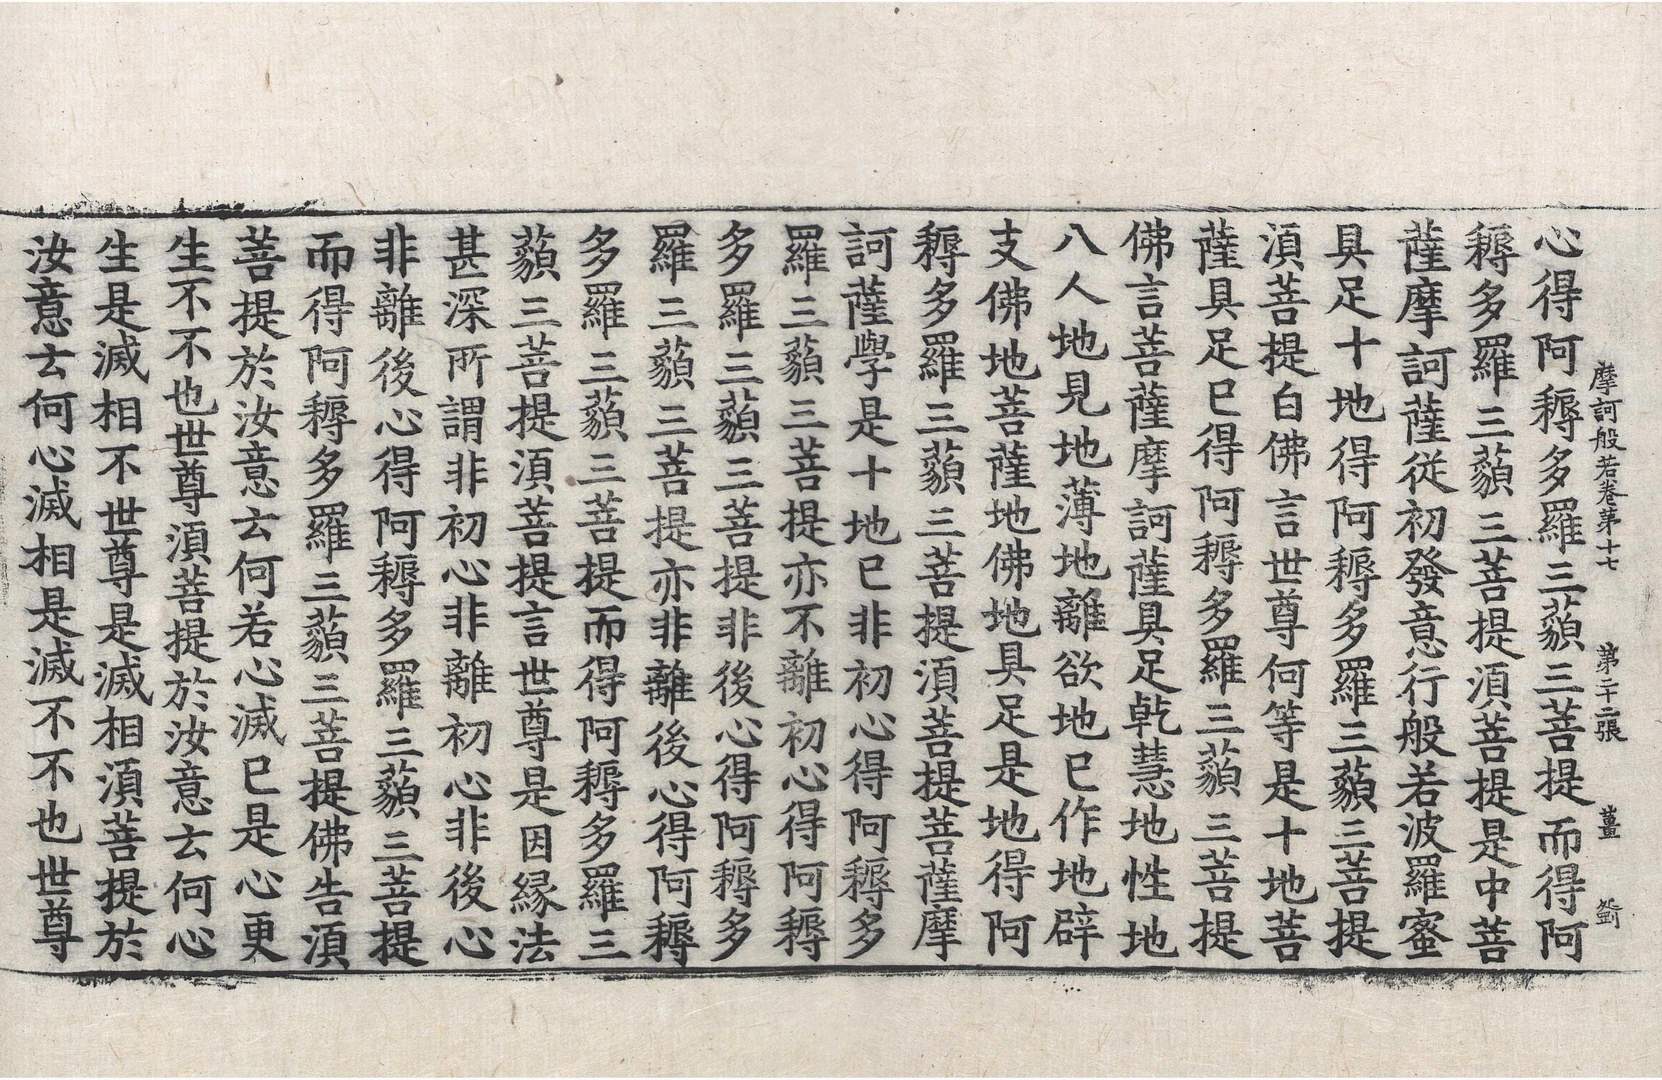 摩訶般若卷第十七 第二十二張 薑
心得阿耨多羅三藐三菩提而得阿
耨多羅三藐三菩提湏菩提是中菩
薩摩訶薩從初發意行般若波羅蜜
具足十地得阿耨多羅三藐三菩提
湏菩提白佛言世尊何等是十地菩
薩具足巳得阿耨多羅三藐三菩提
佛言菩薩摩訶薩具足乾慧地性地
八人地見地薄地離欲地巳作地辟
支佛地菩薩地佛地具足是地得阿
耨多羅三藐三菩提湏菩提菩薩摩
訶薩學是十地巳非初心得阿耨多
羅三藐三菩提亦不離初心得阿耨
多羅三藐三菩提非後心得阿耨多
羅三藐三菩提亦非離後心得阿耨
多羅三藐三菩提而得阿耨多羅三
藐三菩提湏菩提言世尊是因縁法
甚深所謂非初心非離初心非後心
非離後心得阿耨多羅三藐三菩提
而得阿耨多羅三藐三菩提佛告湏
菩提於汝意云何若心滅巳是心更
生不不也世尊湏菩提於汝意云何心
生是滅相不世尊是滅相湏菩提於
汝意云何心滅相是滅不不也世尊